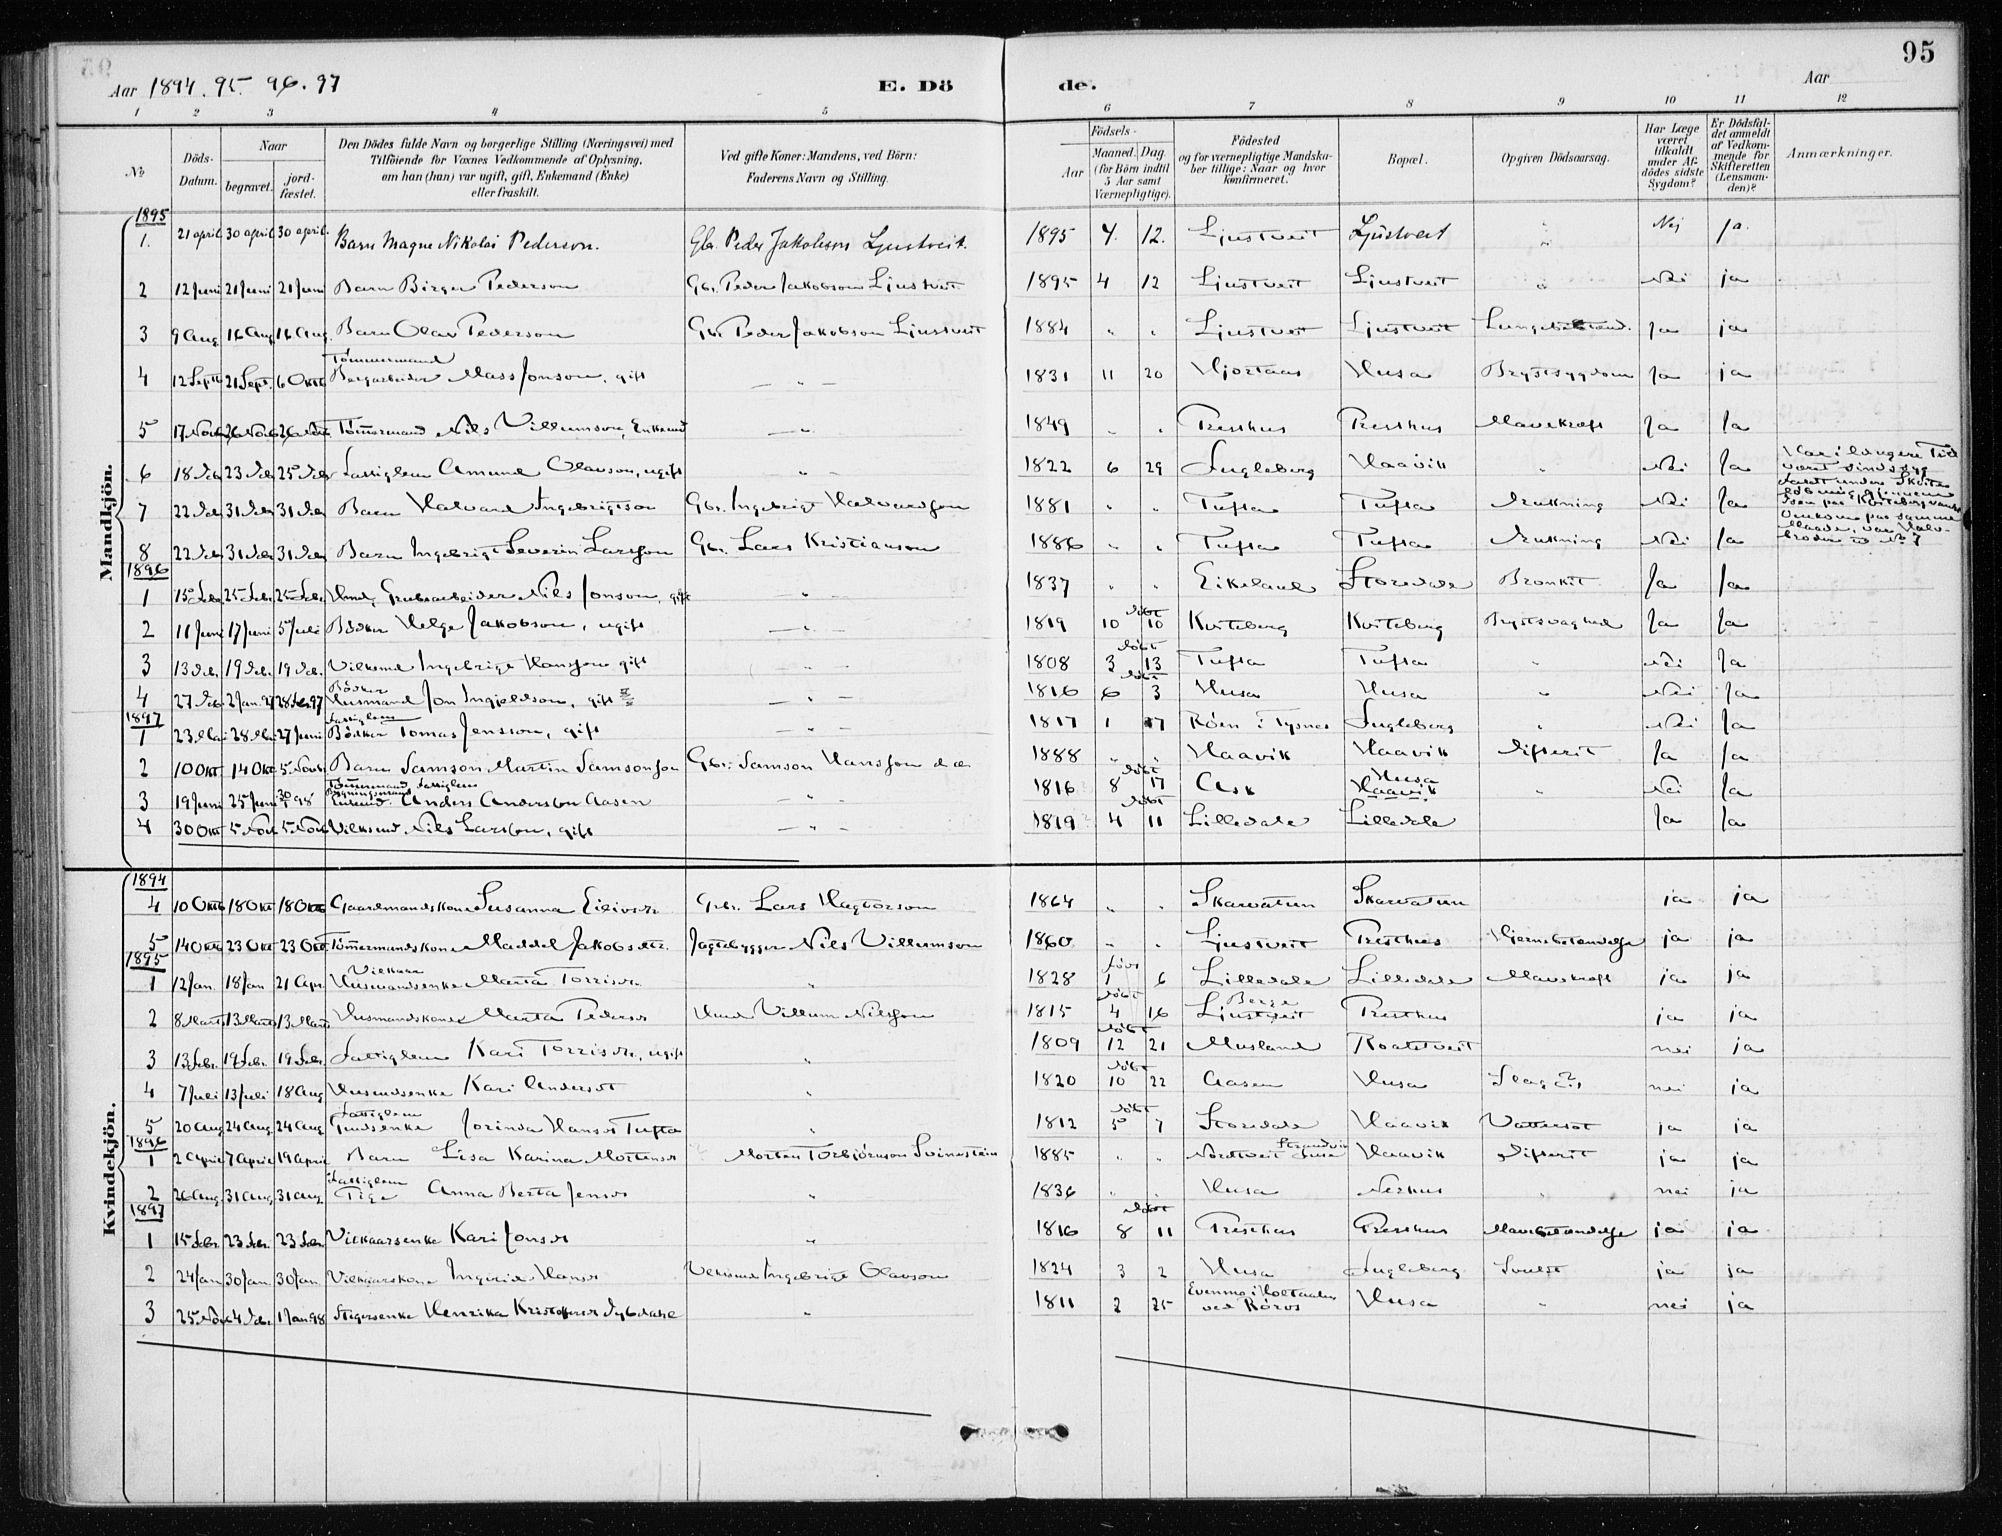 95
Aar 1894. 95. 96. 97
E. Dö de.
Aar
1 2 3 4 5 6 7 8 9 10 11 12
No
Döds-Datum.
Naar
begravet.
jord-fæstet.
Den Dödes fulde Navn og borgerlige Stilling (Næringsvei) med
Tilföiende for Voxnes Vedkommende af Oplysning,
om han (hun) var ugift, gift, Enkemand (Enke)
eller fraskilt.
Ved gifte Koner: Mandens, ved Börn:
Faderens Navn og Stilling.
Födsels-
Aar
Maaned. Dag.
(for Börn indtil
5 Aar samt
Værnepligtige).
Födested
og for værnepligtige Mandska-
ber tillige: Naar og hvor
konfirmeret.
Bopæl.
Opgiven Dödsaarsag.
Har Læge
været
tilkaldt
under Af-
dödes sidste
Sygdom?
Er Dödsfal-
det anmeldt
af Vedkom-
mende for
Skifteretten
(Lensman-
den)?
Anmærkninger.
Mandkjön.
1895
1. 21 april 30 april 30 april. Barn Magne Nikolai Pederson. Gbr. Peder Jakobson Ljustveit. 1895 4. 12. Ljustveit Ljustveit " Nej Ja.
2 12 Juni 21 Juni 21 Juni Barn Birger Pederson Gbr. Peder Jakobson Ljustveit 1895 4 12 Ljustveit Ljustveit " Nei ja
3 9 Aug 16 Aug 16 Aug. Barn Olav Pederson Gbr. Peder Jakobson Ljustveit 1884 " " Ljustveit Ljustveit Ja ja
Tømmermand
4 12 Septb 21 Sept. 6 Oktb Bergarbeider Mass Jonson, gift — " — 1831 11 20 Hjortaas Husa Brystsygdom Ja ja
5 17 Novb 26 Novb 26 Novb Tømmermand Nils Villumson, Enkemd — " 1849 " " Presthus Presthus Mavekræft Ja Ja
6 18 Deb 23 Deb 25 Deb Fattiglem Amund Olavson, ugift " 1822 6 29 Fugleberg Haavik " Nei Ja Har i længere Tid
været sindssyg
7 22 Deb 31 Deb 31 Deb Barn Halvard Ingebrigtson Gbr. Ingebrigt Halvardson 1881 " " Tufta Tufta Drukning Nei Ja Faldt under Skøite-
løbning gjennem
Isen paa Kvitebergvandet
8 22 Deb 31 Deb 31 Deb Barn Ingebrigt Severin Larsson Gbr. Lars Kristianson 1886 " " Tufta Tufta Drukning Nei Ja Omkom paa samme
Maade, var Halv-
broder til No 7
1896
1 15 Febr 25 Febr. 25 Febr. Husmd, Grubearbeider Nils Jonson, gift " 1837 " " Eikeland Storedale Bronkit Ja Ja
2 11 Juni 17 Juni 5 Juli Bødker Helge Jakobson, ugift — " — 1819 10 døbt 10 Kviteberg Kviteberg Brystsvaghed Ja Ja
3 13 Deb. 19 Deb. 19 Deb. Vilksmd Ingebrigt Hansson gift " 1808 3 døbt 13 Tufta Tufta " Nei Ja
Bødker
4 27 Deb 2 Jan. 97 28 Feb 97 Husmand Jon Ingjeldson, gift " — 1816 6 døbt 3 Husa Husa " Nei Ja
1897
Fattiglem
1 23 Mai 28 Mai 27 Juni Bødker Tomas Jensson, gift — " — 1817 1 17 Røen i Tysnes Fugleberg " Nei Ja
2 10 Okt 14 Okt 5 Novb. Barn Samson Martin Samsonson Gbr. Samson Hansson 1888 " " Haavik Haavik Difterit Ja Ja
Tømmermand Fattiglem
3 19 Juni 25 Juni 30/1 98 Anders Anderson Aasen " 1816 8 døbt 17 Ask Husa
Haavik " Nei Ja
4 30 Okt 5 Nov 5 Nov Vilksmd Nils Larsson, gift — " — 1819 4 døbt 11 Lilledale Lilledale Ja Ja
Kvindekjön.
1894
4 10 Oktb 18 Okt 18 Okt Gaardmandskone Susanna Eilivsdr Gbr. Lars Hagtorson 1864 " " Skarvatun Skarvatun ja ja
5 14 Oktb 23 Okt 23 Okt Tømmermandskone Maddel Jakobsdtr. Jagtebygger Nils Villumson 1860 " " Ljustveit Presthus Hjernebetændelse ja ja
1895
Vilkaar
1 12 Jan. 18 Jan 21 Apr. Husmandsenke Marta Torrisdr. " 1828 født 1 6 Lilledale Lilledale Mavekræft ja ja
2 8 Marts 13 Marts 13 Marts Husmandskone Marta Pedersdr Husmd Villum Nilsson 1815 døbt 4 16 Berge
Ljustveit Presthus ja ja
3 13 Febr. 19 Febr. 19 Febr. Fattiglem Kari Torrisdr, ugift " 1809 døbt 12 21 Musland Roaldtveit nei ja
4 7 Juli 13 Juli 18 Aug Husmdsenke Kari Andersdt 1820 døbt 10 22 Aasen Husa Slag (?) nei ja
Fattiglem
5 20 Aug 24 Aug. 24 Aug. Gmdsenke Jorinda Hansdr Tufta " 1812 døbt 5 7 Storedale Haavik Vattersot ja ja
1896
1 2 April 7 April 19 April Barn Lisa Karina Mortensdr Morten Torbjørnson Svinestein 1885 " " Nordtveit Strandvik Fuse Haavik Difterit ja ja
Fattiglem
2 26 Aug. 31 Aug. 31 Aug. Pige Anna Berta Jensdr " 1836 " " Husa Nerhus " nei ja
1897
1 15 Febr. 23 Febr. 23 Febr. Vilkaarsenke Kari Jonsdr " 1816 døbt 8 11 Presthus Presthus Mavebetændelse ja ja
2 24 Jan 30 Jan. 30 Jan. Vilkaarskone Ingerid Hansdr Vilksmd Ingebrigt Olavson 1824 3 2 Husa Fugleberg Svulst ja ja
3 25 Nov 4 Deb. 1 Jan 98 Stigersenke Henrika Kristofersdr Sybdahl " 1811 2 25 Evenmo i Holtaalen
ved Röros Husa " nei ja